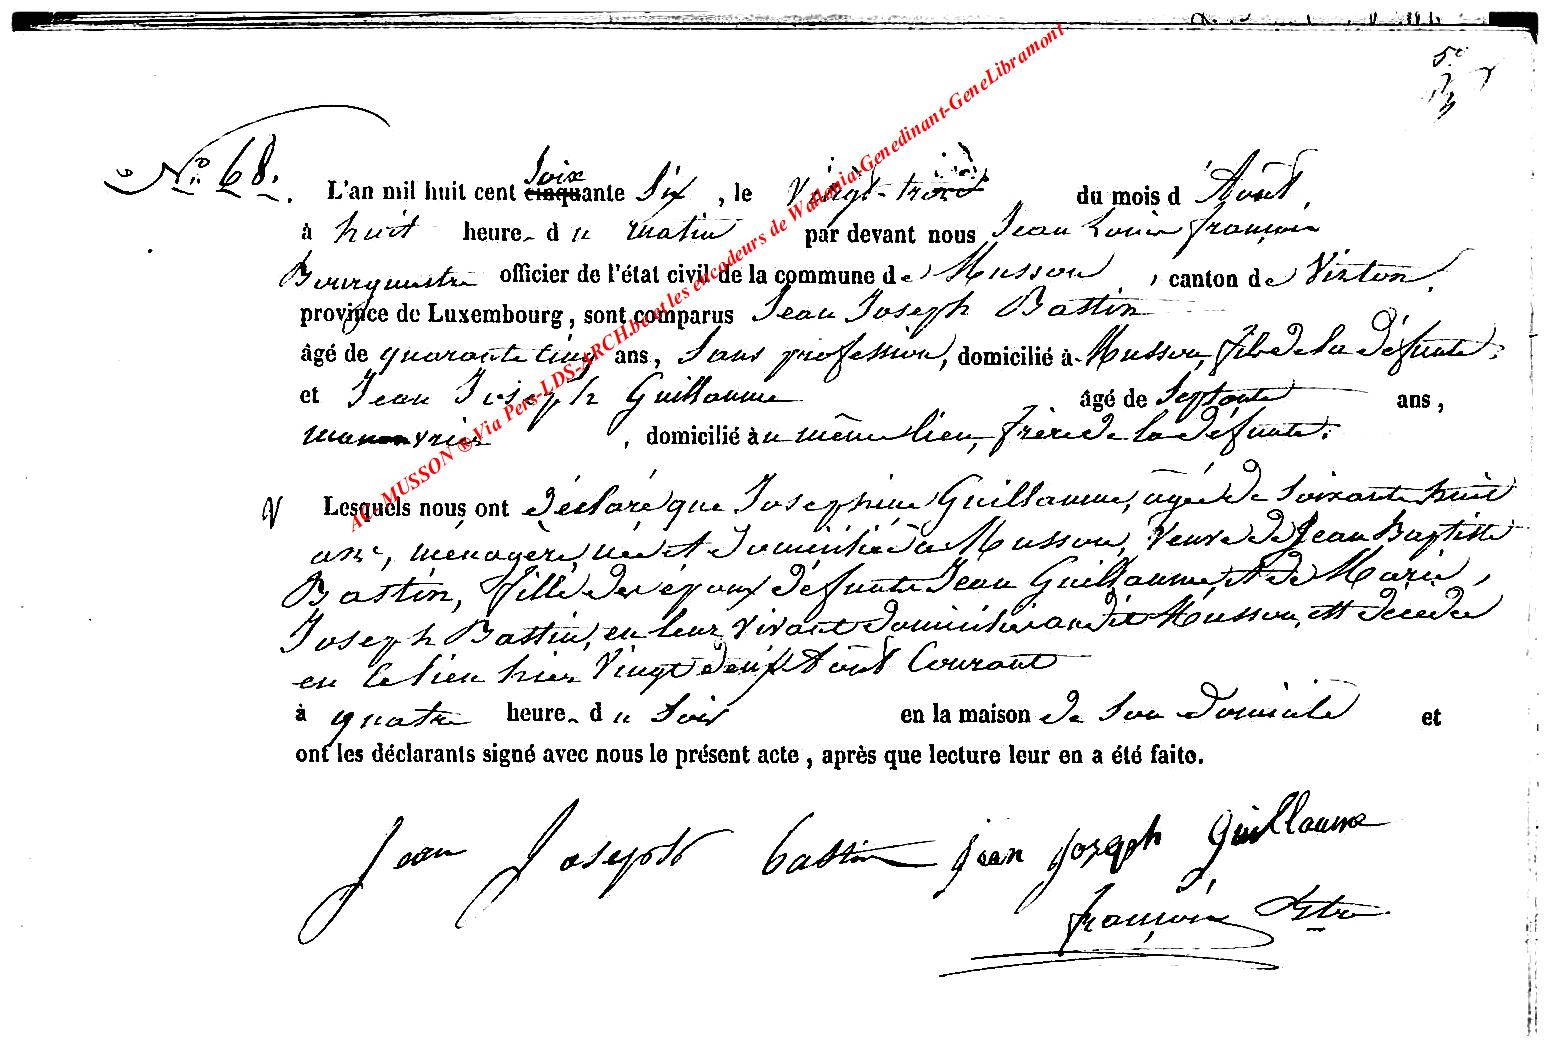 N° 68.
L'an mil huit cent cinquante Soix Six, le Vingt-trois du mois d'Août,
à huit heure du matin par devant nous Jean Louis françois
Bourgmestre officier de l'état civil de la commune de Musson, canton de Virton.
province de Luxembourg, sont comparus Jean Joseph Bastin
âgé de quarante cinq ans, Sans profession, domicilié à Musson, fils de la défunte;
et Jean Joseph Guillaume âgé de Septante ans,
manouvrier, domicilié au même lieu, frère de la défunte.
V Lesquels nous ont déclaré que Josephine Guillaume, âgée de Soixante huit
ans, ménagère, née et domiciliée à Musson, Veuve de Jean Baptiste
Bastin, fille des époux défunts Jean Guillaume et de Marie
Joseph Bastin, en leur vivant domiciliés au dit Musson, est décédée
en ce lieu hier Vingt deux Août Courant
à quatre heure du Soir en la maison de Son domicile et
ont les déclarants signé avec nous le présent acte, après que lecture leur en a été faite.
Jean Joseph bastin jean joseph guillaume
françois
MUSSON ® Via Pers-LDS-ARCH.be et les encodeurs de Wallonia-Genedinant-GeneLibramont